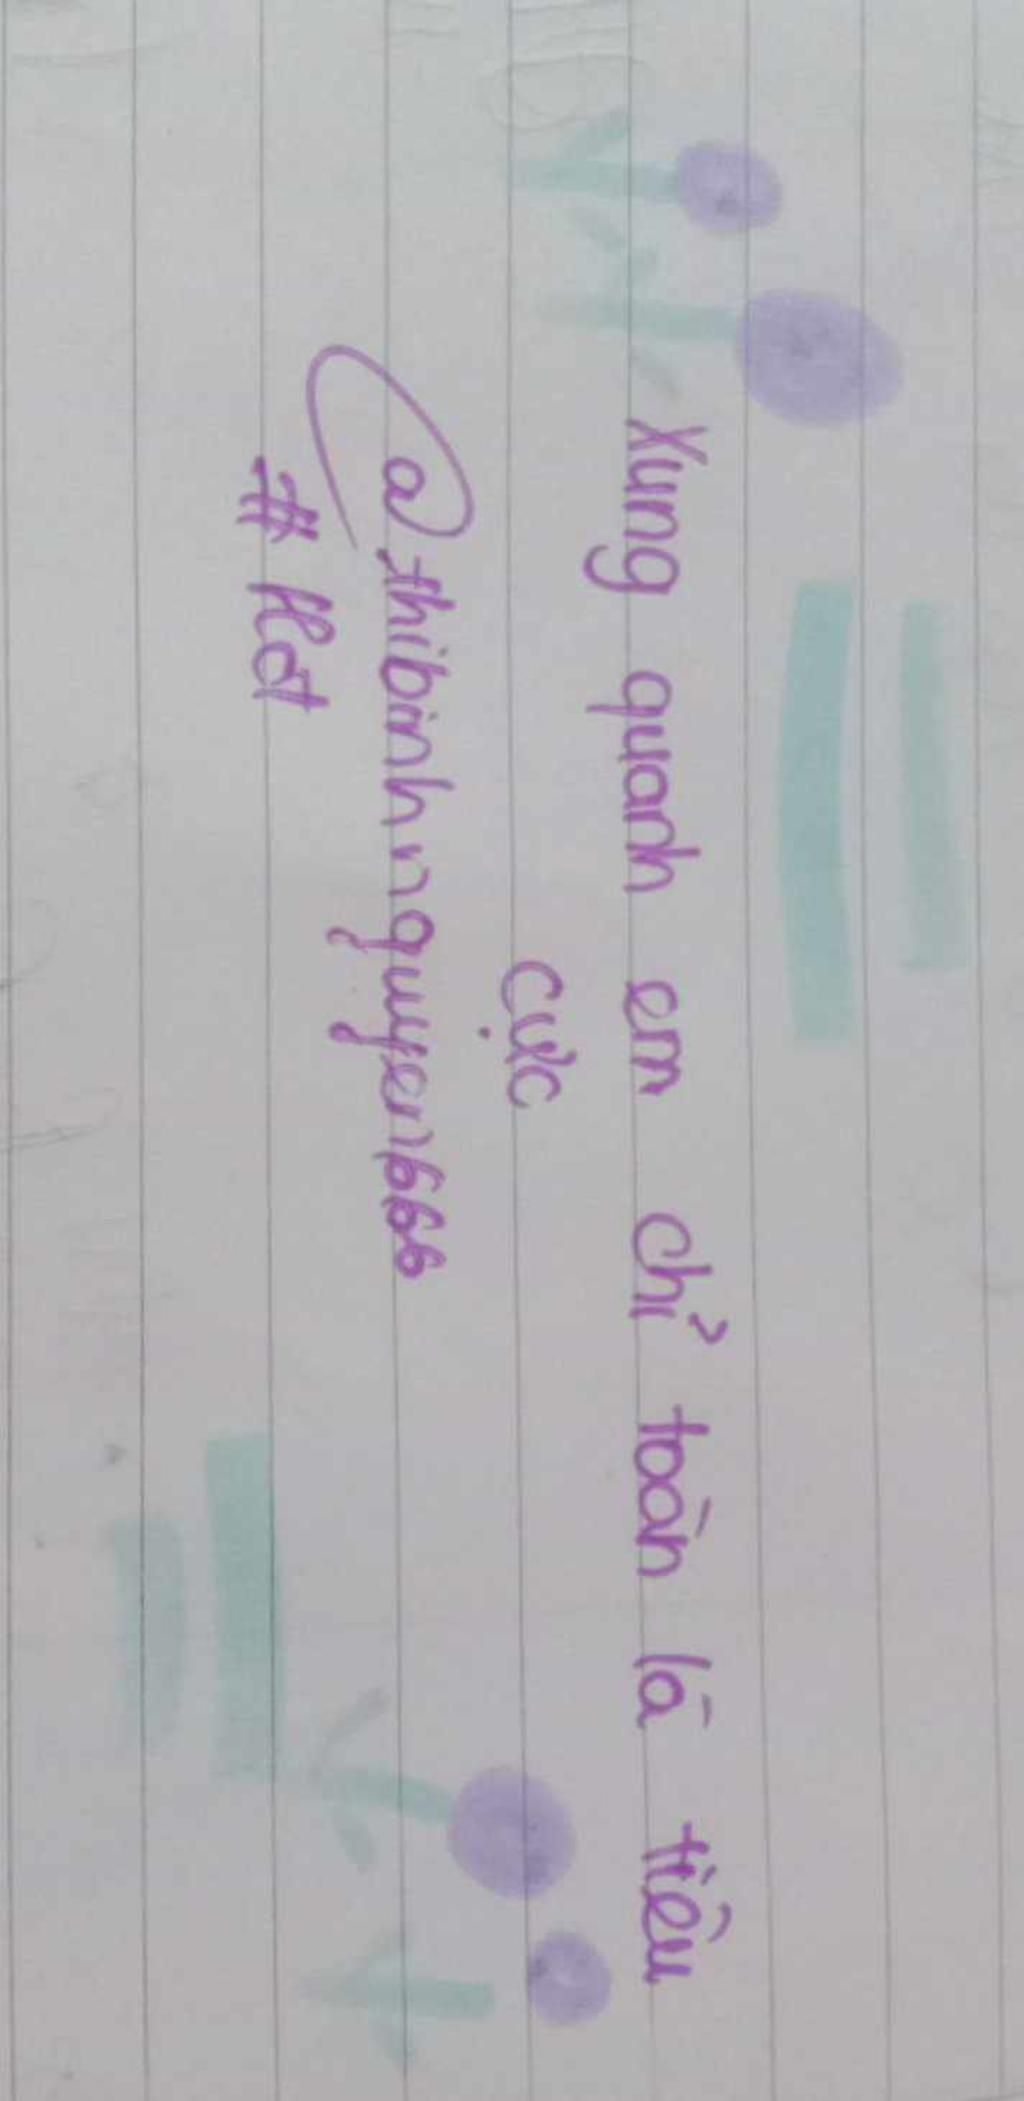 Xung quanh em chỉ toàn là tiêu
cực
@thibinhnguyen666
# Hot